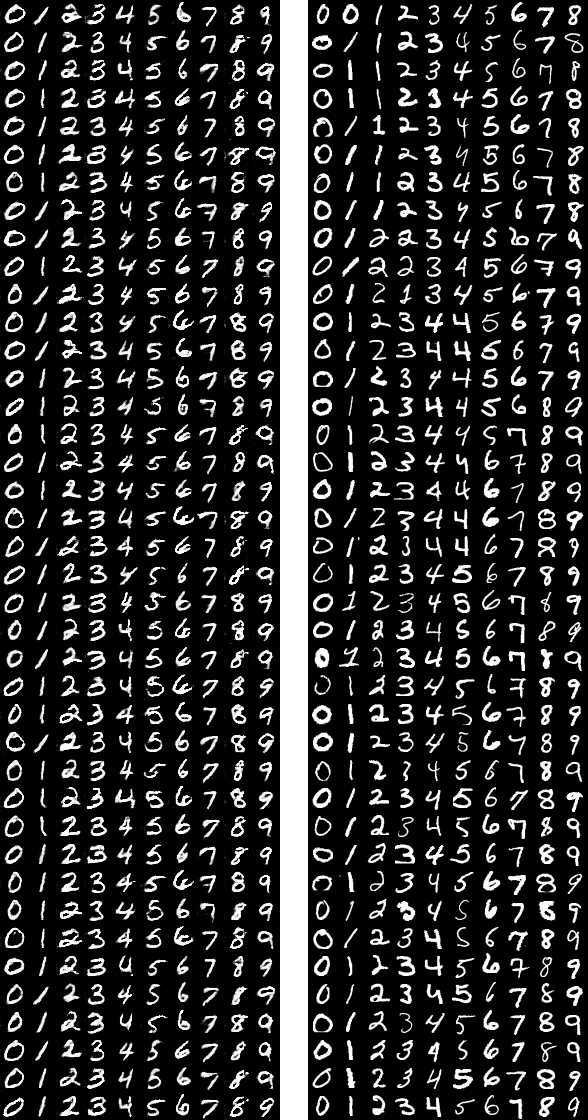 0 1 2 3 4 5 6 7 8 9 0 0 1 2 3 4 5 6 7 8
0 1 2 3 4 5 6 7 8 9 0 1 1 2 3 4 5 6 7 8
0 1 2 3 4 5 6 7 8 9 0 1 1 2 3 4 5 6 7 8
0 1 2 3 4 5 6 7 8 9 0 1 1 2 3 4 5 6 7 8
0 1 2 3 4 5 6 7 8 9 0 1 1 2 3 4 5 6 7 8
0 1 2 3 4 5 6 7 8 9 0 1 1 2 3 4 5 6 7 8
0 1 2 3 4 5 6 7 8 9 0 1 1 2 3 4 5 6 7 8
0 1 2 3 4 5 6 7 8 9 0 1 1 2 3 4 5 6 7 8
0 1 2 3 4 5 6 7 8 9 0 1 2 2 3 4 5 6 7 9
0 1 2 3 4 5 6 7 8 9 0 1 2 2 3 4 5 6 7 9
0 1 2 3 4 5 6 7 8 9 0 1 2 1 3 4 5 6 7 9
0 1 2 3 4 5 6 7 8 9 0 1 2 3 4 4 5 6 7 9
0 1 2 3 4 5 6 7 8 9 0 1 2 3 4 4 5 6 7 9
0 1 2 3 4 5 6 7 8 9 0 1 2 3 4 4 5 6 7 9
0 1 2 3 4 5 6 7 8 9 0 1 2 3 4 4 5 6 8 9
0 1 2 3 4 5 6 7 8 9 0 1 2 3 4 4 5 7 8 9
0 1 2 3 4 5 6 7 8 9 0 1 2 3 4 4 6 7 8 9
0 1 2 3 4 5 6 7 8 9 0 1 2 3 4 4 6 7 8 9
0 1 2 3 4 5 6 7 8 9 0 1 2 3 4 4 6 7 8 9
0 1 2 3 4 5 6 7 8 9 0 1 2 3 4 4 6 7 8 9
0 1 2 3 4 5 6 7 8 9 0 1 2 3 4 5 6 7 8 9
0 1 2 3 4 5 6 7 8 9 0 1 2 3 4 5 6 7 8 9
0 1 2 3 4 5 6 7 8 9 0 1 2 3 4 5 6 7 8 9
0 1 2 3 4 5 6 7 8 9 0 1 2 3 4 5 6 7 8 9
0 1 2 3 4 5 6 7 8 9 0 1 2 3 4 5 6 7 8 9
0 1 2 3 4 5 6 7 8 9 0 1 2 3 4 5 6 7 8 9
0 1 2 3 4 5 6 7 8 9 0 1 2 3 4 5 6 7 8 9
0 1 2 3 4 5 6 7 8 9 0 1 2 3 4 5 6 7 8 9
0 1 2 3 4 5 6 7 8 9 0 1 2 3 4 5 6 7 8 9
0 1 2 3 4 5 6 7 8 9 0 1 2 3 4 5 6 7 8 9
0 1 2 3 4 5 6 7 8 9 0 1 2 3 4 5 6 7 8 9
0 1 2 3 4 5 6 7 8 9 0 1 2 3 4 5 6 7 8 9
0 1 2 3 4 5 6 7 8 9 0 1 2 3 4 5 6 7 8 9
0 1 2 3 4 5 6 7 8 9 0 1 2 3 4 5 6 7 8 9
0 1 2 3 4 5 6 7 8 9 0 1 2 3 4 5 6 7 8 9
0 1 2 3 4 5 6 7 8 9 0 1 2 3 4 5 6 7 8 9
0 1 2 3 4 5 6 7 8 9 0 1 2 3 4 5 6 7 8 9
0 1 2 3 4 5 6 7 8 9 0 1 2 3 4 5 6 7 8 9
0 1 2 3 4 5 6 7 8 9 0 1 2 3 4 5 6 7 8 9
0 1 2 3 4 5 6 7 8 9 0 1 2 3 4 5 6 7 8 9